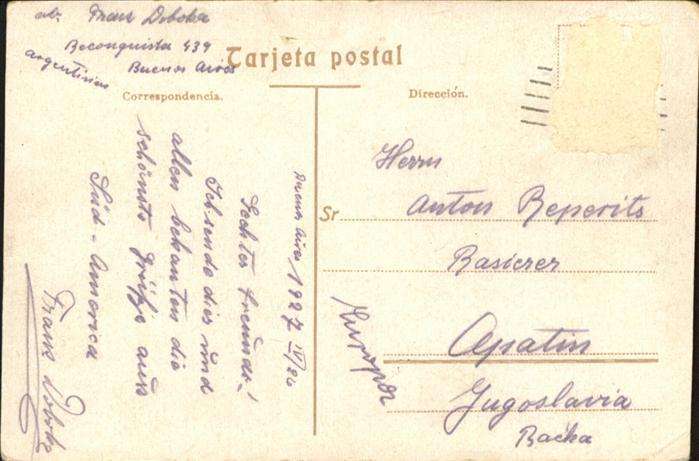 Franz Doboka
Reconquista 439
Buenos Aires
Argentinien
Tarjeta postal
Correspondencia.
Dirección.
Buenos Aires 1927 IV/26
Freund!
Ich sende dir und
allen bekanten die
schönste Grüße aus
Süd-America
Franz Doboka
Herrn
Sr Anton Reperits
Rasierer
Apatin
Jugoslavia
Bačka
Europa